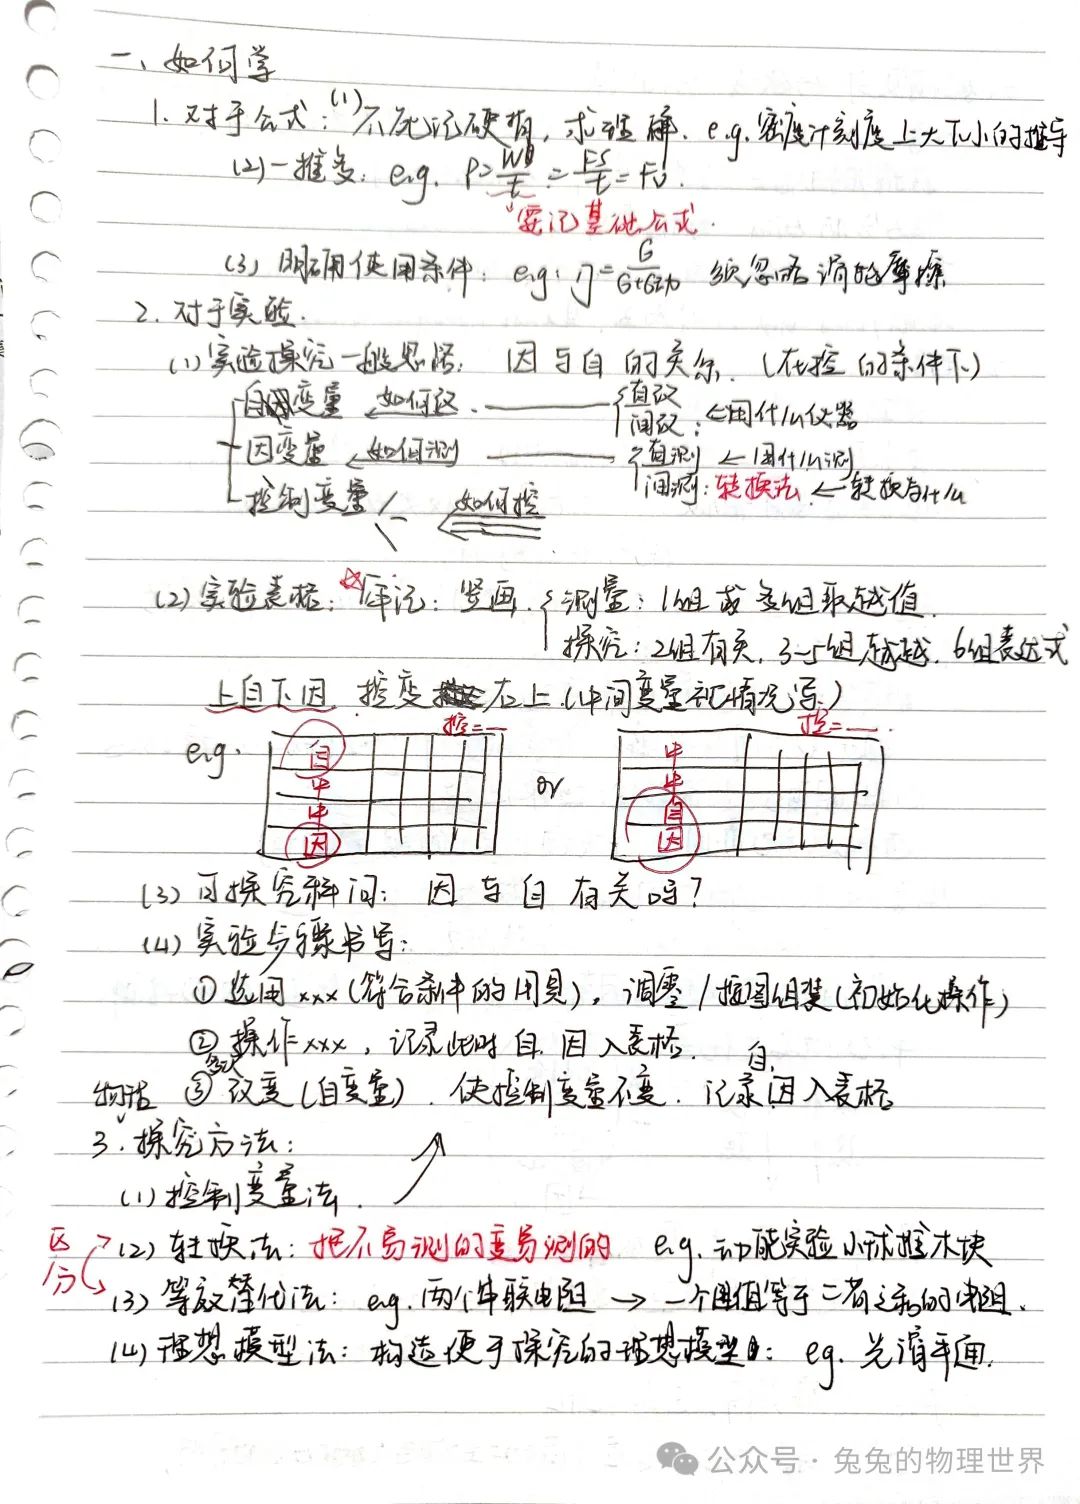 一、如何学
1. 对于公式：(1) 不死记硬背，求理解. e.g. 密度计刻度上大下小的推导
(2) 一推多：e.g. P=W/t=FS/t=Fv.
要记基础公式.
(3) 明确使用条件：e.g: η=G/(G+G动) 须忽略绳重摩擦
2. 对于实验.
(1) 实验探究一般思路： 因与自的关系. (在控的条件下)
自变量 ← 如何改. 直改
间改：←用什么仪器
因变量 ← 如何测 直测 ← 用什么测
间测：转换法 ← 转换为什么
控制变量 如何控
(2) 实验表格：☆牢记：竖画. 测量：1组或多组取越值.
探究：2组有关，3-5组越越，6组表达式
上自下因，控变右上.(中间变量视情况写)
e.g. 控=— 控=—.
自 中
中 中
or
中 自
因 因
(3) 可探究科问： 因与自有关吗？
(4) 实验步骤书写：
① 选用xxx(符合条件的用具)，调零/按图组装(初始化操作)
② 操作xxx，记录此时自、因入表格.
多次
自、
③ 改变(自变量)，使控制变量不变，记录因入表格
物法
3. 探究方法：
(1) 控制变量法.
区分
(2) 转换法：把不易测的变易测的 e.g. 动能实验小球推木块
(3) 等效替代法：e.g. 两个串联电阻 → 一个阻值等于二者之和的电阻.
(4) 理想模型法：构造便于探究的理想模型：eg. 光滑平面.
公众号·兔兔的物理世界